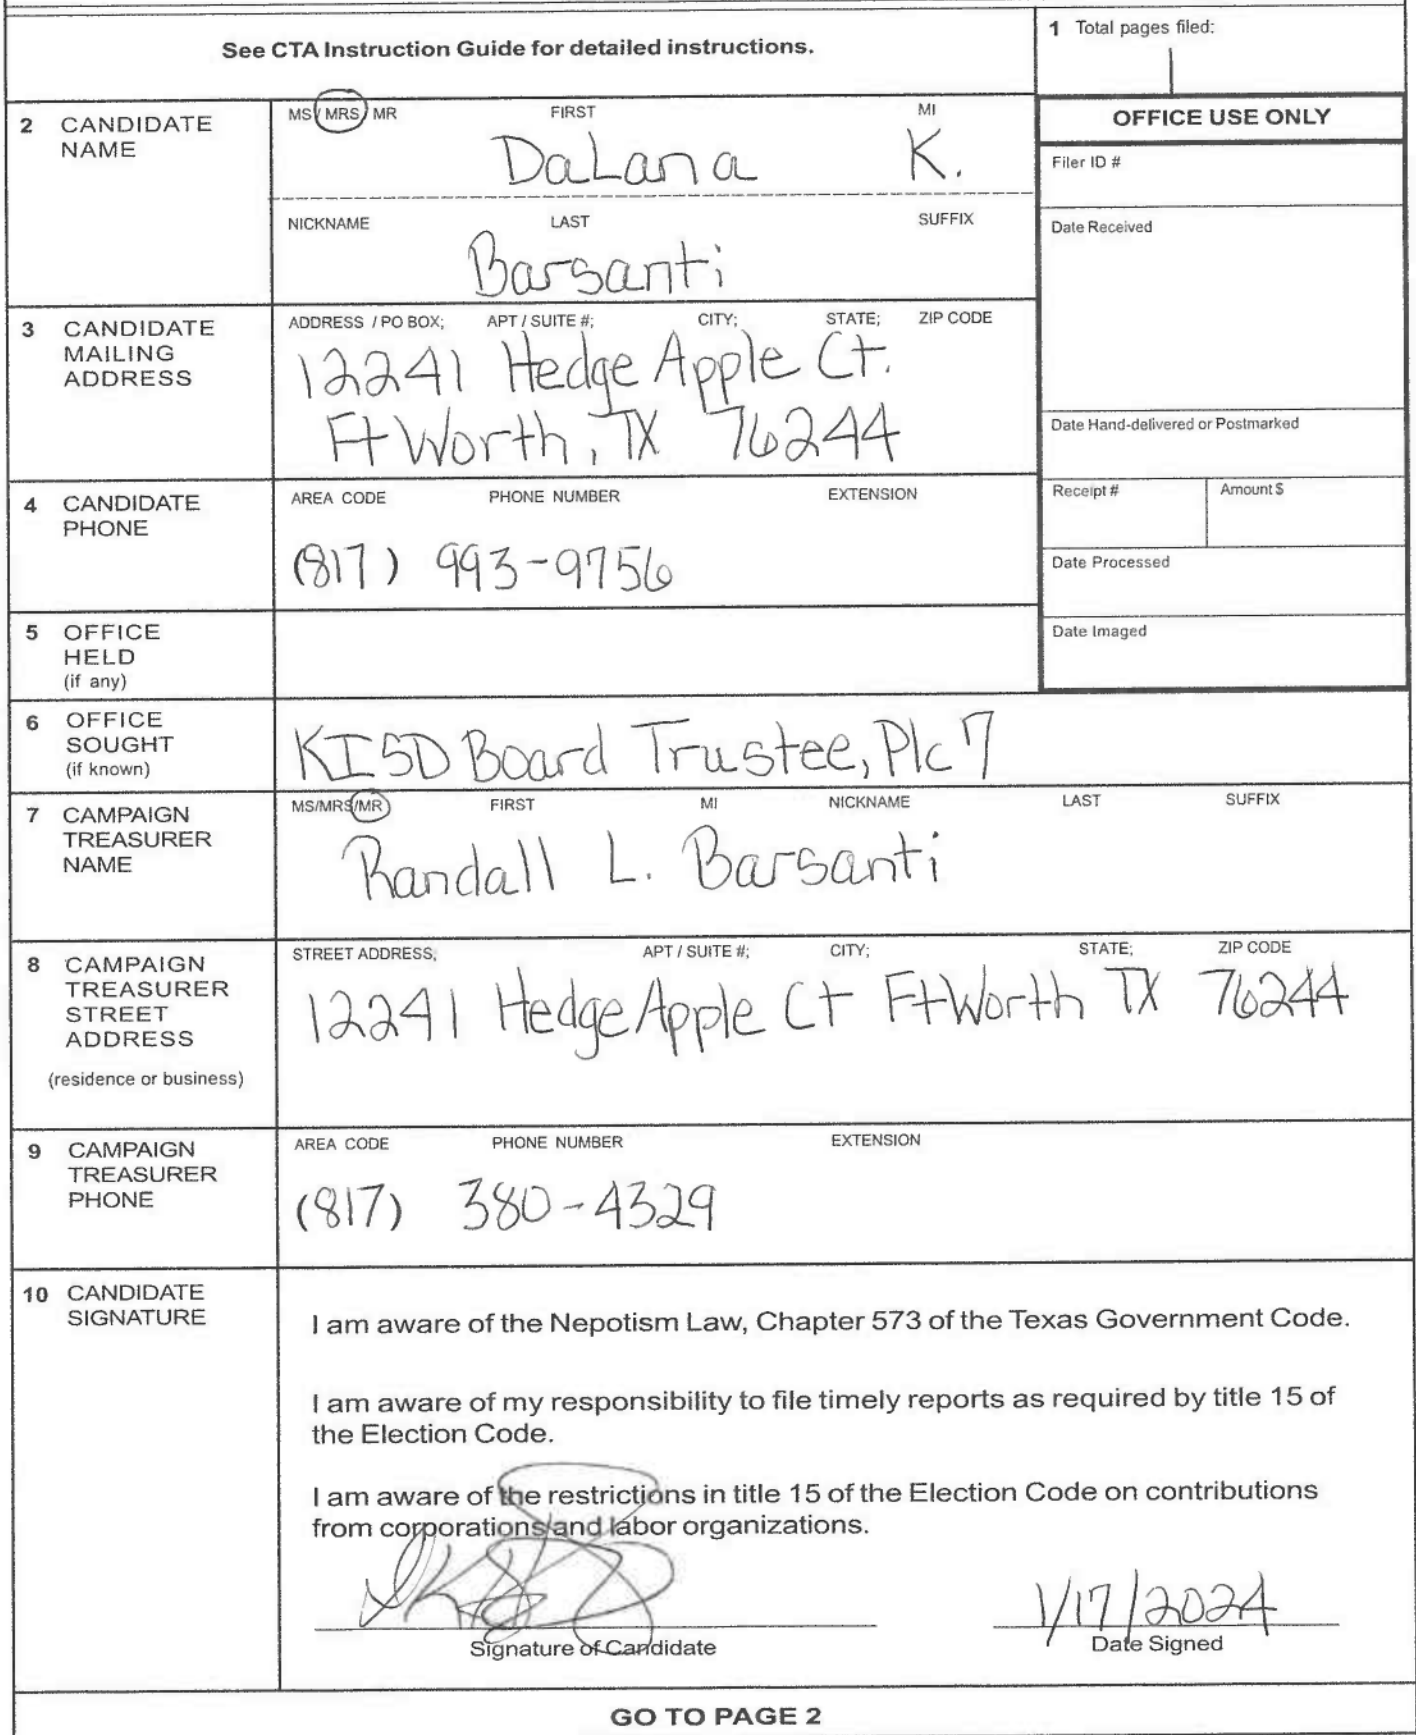 See CTA Instruction Guide for detailed instructions.
1 Total pages filed:
1
2 CANDIDATE NAME
MS / MRS / MR FIRST MI
DaLana K.
NICKNAME LAST SUFFIX
Barsanti
OFFICE USE ONLY
Filer ID #
Date Received
3 CANDIDATE MAILING ADDRESS
ADDRESS / PO BOX; APT / SUITE #; CITY; STATE; ZIP CODE
12241 Hedge Apple Ct.
Ft Worth, TX 76244
Date Hand-delivered or Postmarked
4 CANDIDATE PHONE
AREA CODE PHONE NUMBER EXTENSION
(817) 993-9756
Receipt # Amount $
Date Processed
5 OFFICE HELD (if any)
Date Imaged
6 OFFICE SOUGHT (if known)
KISD Board Trustee, Plc 7
7 CAMPAIGN TREASURER NAME
MS/MRS/MR FIRST MI NICKNAME LAST SUFFIX
Randall L. Barsanti
8 CAMPAIGN TREASURER STREET ADDRESS
(residence or business)
STREET ADDRESS; APT / SUITE #; CITY; STATE; ZIP CODE
12241 Hedge Apple Ct Ft Worth TX 76244
9 CAMPAIGN TREASURER PHONE
AREA CODE PHONE NUMBER EXTENSION
(817) 380-4329
10 CANDIDATE SIGNATURE
I am aware of the Nepotism Law, Chapter 573 of the Texas Government Code.
I am aware of my responsibility to file timely reports as required by title 15 of
the Election Code.
I am aware of the restrictions in title 15 of the Election Code on contributions
from corporations and labor organizations.
1/17/2024
Signature of Candidate Date Signed
GO TO PAGE 2